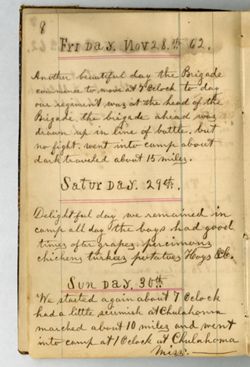 8
Friday, Nov 28.th 62.
Another beautiful day the Brigade
commence to move at 7 Oclock to day
our regiment was at the head of the
Brigade. the brigade ahead was
drawn up in line of battle, but
no fight, went into camp about
dark traveled about 15 miles.
Saturday. 29th.
Delightful day we remained in
camp all day the boys had good
times after grapes, persimons
chickens turkies potatoes Hogs &c.
Sunday. 30th
We started again about 7 Oclock
had a little scirmish at Chulahoma
marched about 10 miles and went
into camp at 1 Oclock at Chulahoma
Miss.